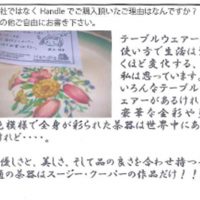 社ではなく Handle でご購入頂いたご理由はなんですか？
の他ご自由にお書き下さい。
テーブルウェアー
使い方で生活は
くほど変化する、
私は思っています。
いろんなテーブル
ェアーがあるけれ
豪華な金彩や
色模様で全身が彩られた茶器は世界中にあ
けれど････。
優しさと、美しさ、そして品の良さを合わせ持つ
通の茶器はスージー・クーパーの作品だけ！！